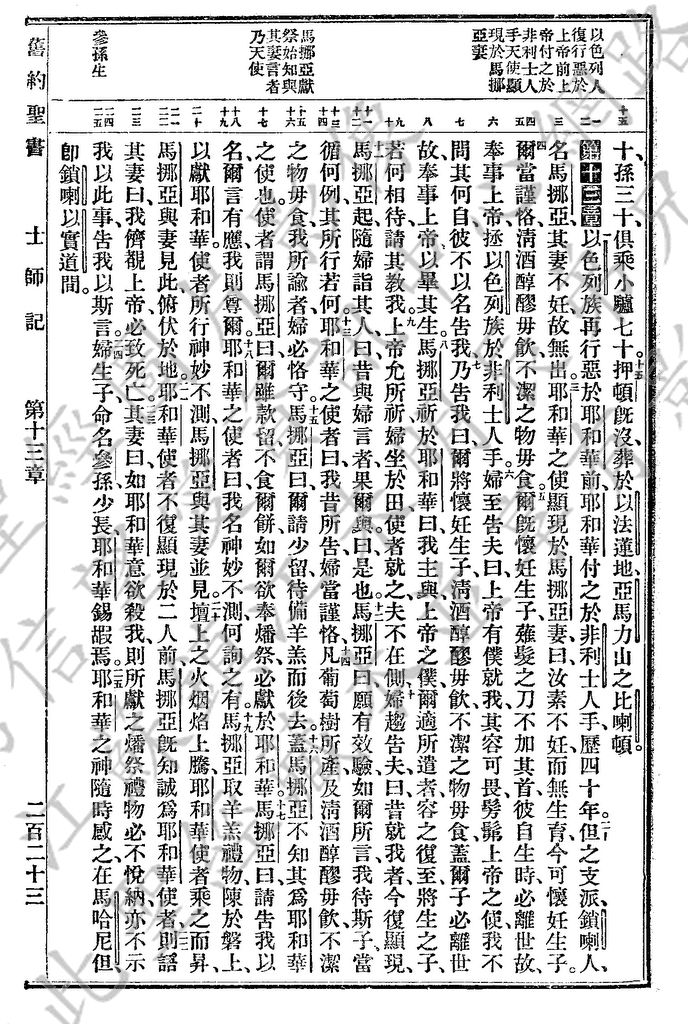 以色列人
復行惡於
上帝前上
帝付之於
非利士人
手天使顯
現於馬挪
亞妻
馬挪亞獻
祭始知與
其妻言者
乃天使
參孫生
十孫三十俱乘小驢七十押頓旣沒葬於以法蓮地亞馬力山之比喇頓
第十三章以色列族再行惡於耶和華前耶和華付之於非利士人手歷四十年但之支派鎖喇人
名馬挪亞其妻不妊故無出耶和華之使顯現於馬挪亞妻曰汝素不妊而無生育今可懷妊生子
爾當謹恪淸酒醇醪毋飲不潔之物毋食爾旣懷妊生子薙髮之刀不加其首彼自生時必離世故
奉事上帝拯以色列族於非利士人手婦至告夫曰上帝有僕就我其容可畏髣髴上帝之使我不
問其何自彼不以名告我乃告我曰爾將懷妊生子淸酒醇醪毋飲不潔之物毋食蓋爾子必離世
故奉事上帝以畢其生馬挪亞祈於耶和華曰我主與上帝之僕爾適所遣者容之復至將生之子
若何相待請其敎我上帝允所祈婦坐於田使者就之夫不在側婦趨告夫曰昔就我者今復顯現
馬挪亞起隨婦詣其人曰昔與婦言者果爾與曰是也馬挪亞曰願有效驗如爾所言我待斯子當
循何例其所行若何耶和華之使者曰我昔所告婦當謹恪凡葡萄樹所產及淸酒醇醪毋飲不潔
之物毋食我所諭者婦必恪守馬挪亞曰爾請少留待備羊羔而後去蓋馬挪亞不知其爲耶和華
之使也使者謂馬挪亞曰爾雖款留不食爾餅如爾欲奉燔祭必獻於耶和華馬挪亞曰請告我以
名爾言有應我則尊爾耶和華之使者曰我名神妙不測何詢之有馬挪亞取羊羔禮物陳於磐上
以獻耶和華使者所行神妙不測馬挪亞與其妻並見壇上之火烟焰上騰耶和華使者乘之而昇
馬挪亞與妻見此俯伏於地耶和華使者不復顯現於二人前馬挪亞旣知誠爲耶和華使者則語
其妻曰我儕覩上帝必致死亡其妻曰如耶和華意欲殺我則所獻之燔祭禮物必不悅納亦不示
我以此事告我以斯言婦生子命名參孫少長耶和華錫嘏焉耶和華之神隨時感之在馬哈尼但
卽鎖喇以實道間
舊約聖書 士師記 第十三章 二百二十三